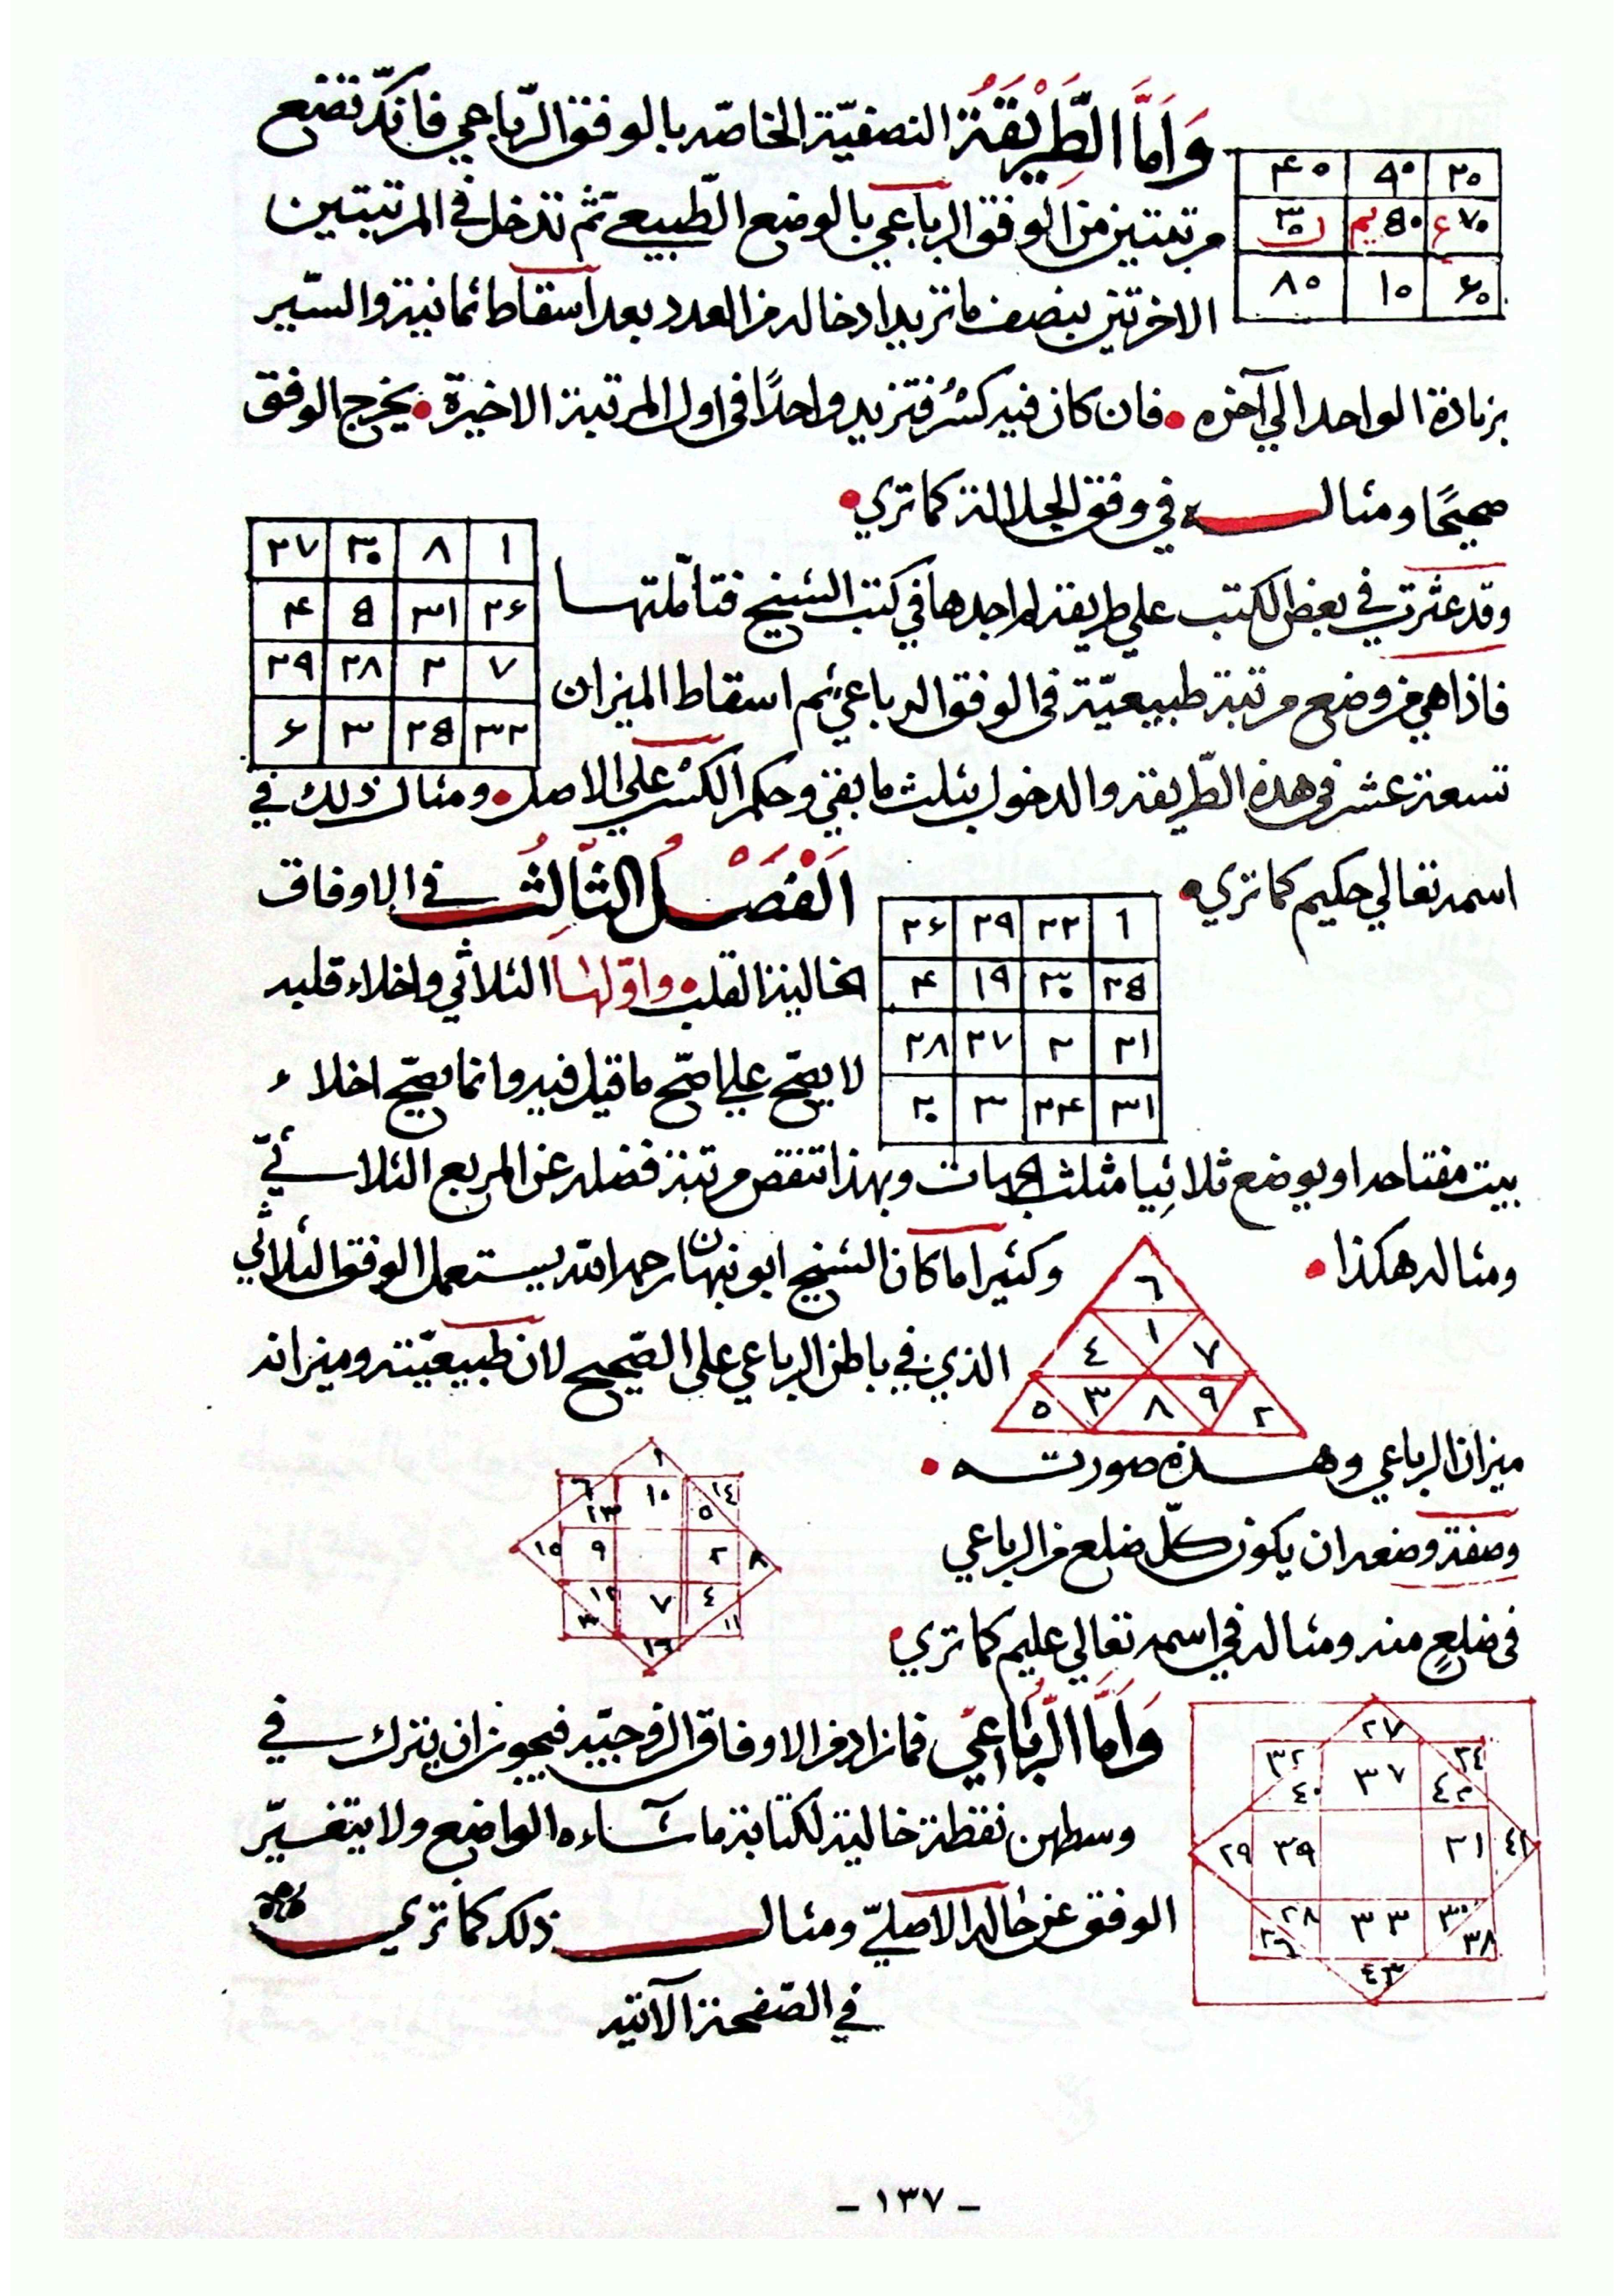 وَاَمَّا الطَّرِيْقَةُ النصفيّة الخاصّه بالوفق الرّباعي فانكّ تضع
٤٠ ٩٠ ٢٠
مرتبتين من الوفق الرباعي بالوضع الطّبيعي ثم تدخل في المرتبتين
٣٠ ن ٥٠ يم ٧٠ ع
الاخرتين بنصف ما تريد ادخاله من العدد بعد اسقاط ثمانية والسّير
٨٠ ١٠ ٦٠
بزيادة الواحد الي آخره • فان كان فيه كسْرٌ فتزيد واحدًا في اول المرتبة الاخيرة • يخرج الوفق
صحيحًا ومثالــــه في وفق الجلالة كما تري •
٢٧ ٣٠ ٨ ١
٢٦ ٣١ ٥ ٤
٢٩ ٢٨ ٢ ٧
٦ ٣ ٢٥ ٣٢
وقد عثرت في بعض الكتب علي طريقة لم اجدها في كتب الشيخ فتأمّلتهــا
فاذا هي من وضع مرتبة طبيعيّة في الوفق الرباعي ثم اسقاط الميزان
تسعة عشر في هذه الطّريقة والدخول بثلث ما بقي وحكم الكسْر علي الاصل • ومثال ذلك في
اسمه تعالي حكيم كما تري •
٢٦ ٢٩ ٢٢ ١
٤ ١٩ ٣٠ ٢٥
٢٨ ٢٧ ٢ ٢١
٢٠ ٣ ٢٤ ٣١
اَلْفَصْــلُ الثَّالِثُ في الاوفاق
الخالية القلب • واوّلهـا الثلاثي واخلاء قلبه
لا يصّح علي اصّح ما قيل فيه وانما يصّح اخلاء
بيت مفتاحه او يوضع ثلاثيا مثلث الجهات وبهذا تنقص مرتبة فضله عن المربع الثلاثــيّ
ومثاله هكذا •
٦
٤ ١ ٧
٥ ٣ ٨ ٩ ٢
وكثيرا ما كان الشيخ ابو نبهان رحمه الله يستعمل الوفق الثلاثي
الذي في باطن الرباعي على الصّحيح لان طبيعيّته وميزانه
ميزان الرباعي وهــذه صورتــه •
١
٦ ١٣ ١٠ ١٤ ٥
١٥ ٩ ٢ ٨
١٢ ٣ ٧ ٤ ١١
١٦
وصفة وضعه ان يكون كلّ ضلع من الرباعي
في ضلعٍ منه ومثاله في اسمه تعالي عليم كما تري •
٢٧
٣٢ ٤٠ ٣٧ ٢٤ ٤٢
٢٩ ٣٩ ٣١ ٤١
٢٨ ٢٦ ٣٣ ٣٠ ٣٨
٤٣
وَاَمَّا الرّبَاعيّ فما زاد من الاوفاق الزوجيّه فيجوز ان يترك في
وسطهن نقطة خالية لكتابة ما شاءه الواضع ولا يتغيّر
الوفق عن حاله الاصليّ ومثالــــ ذلك كما تريــــ
في الصّفحة الآتيه
- ١٣٧ -